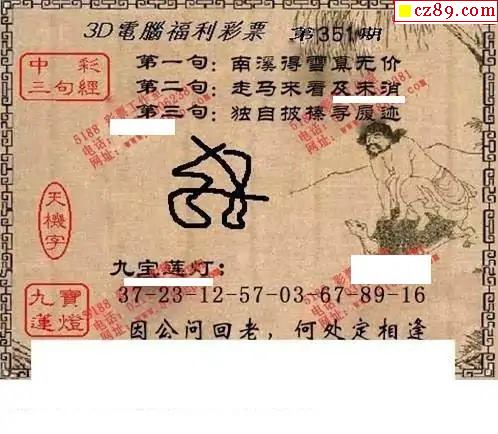 cz89.com
3D電腦福利彩票 第351期
中彩
三句經
第一句：南溪得雪真无价
第二句：走马来看及未消
第三句：独自披榛寻履迹
天機字
九宝莲灯：
九寶蓮燈
37-23-12-57-03-67-89-16
因公问回老，何处定相逢